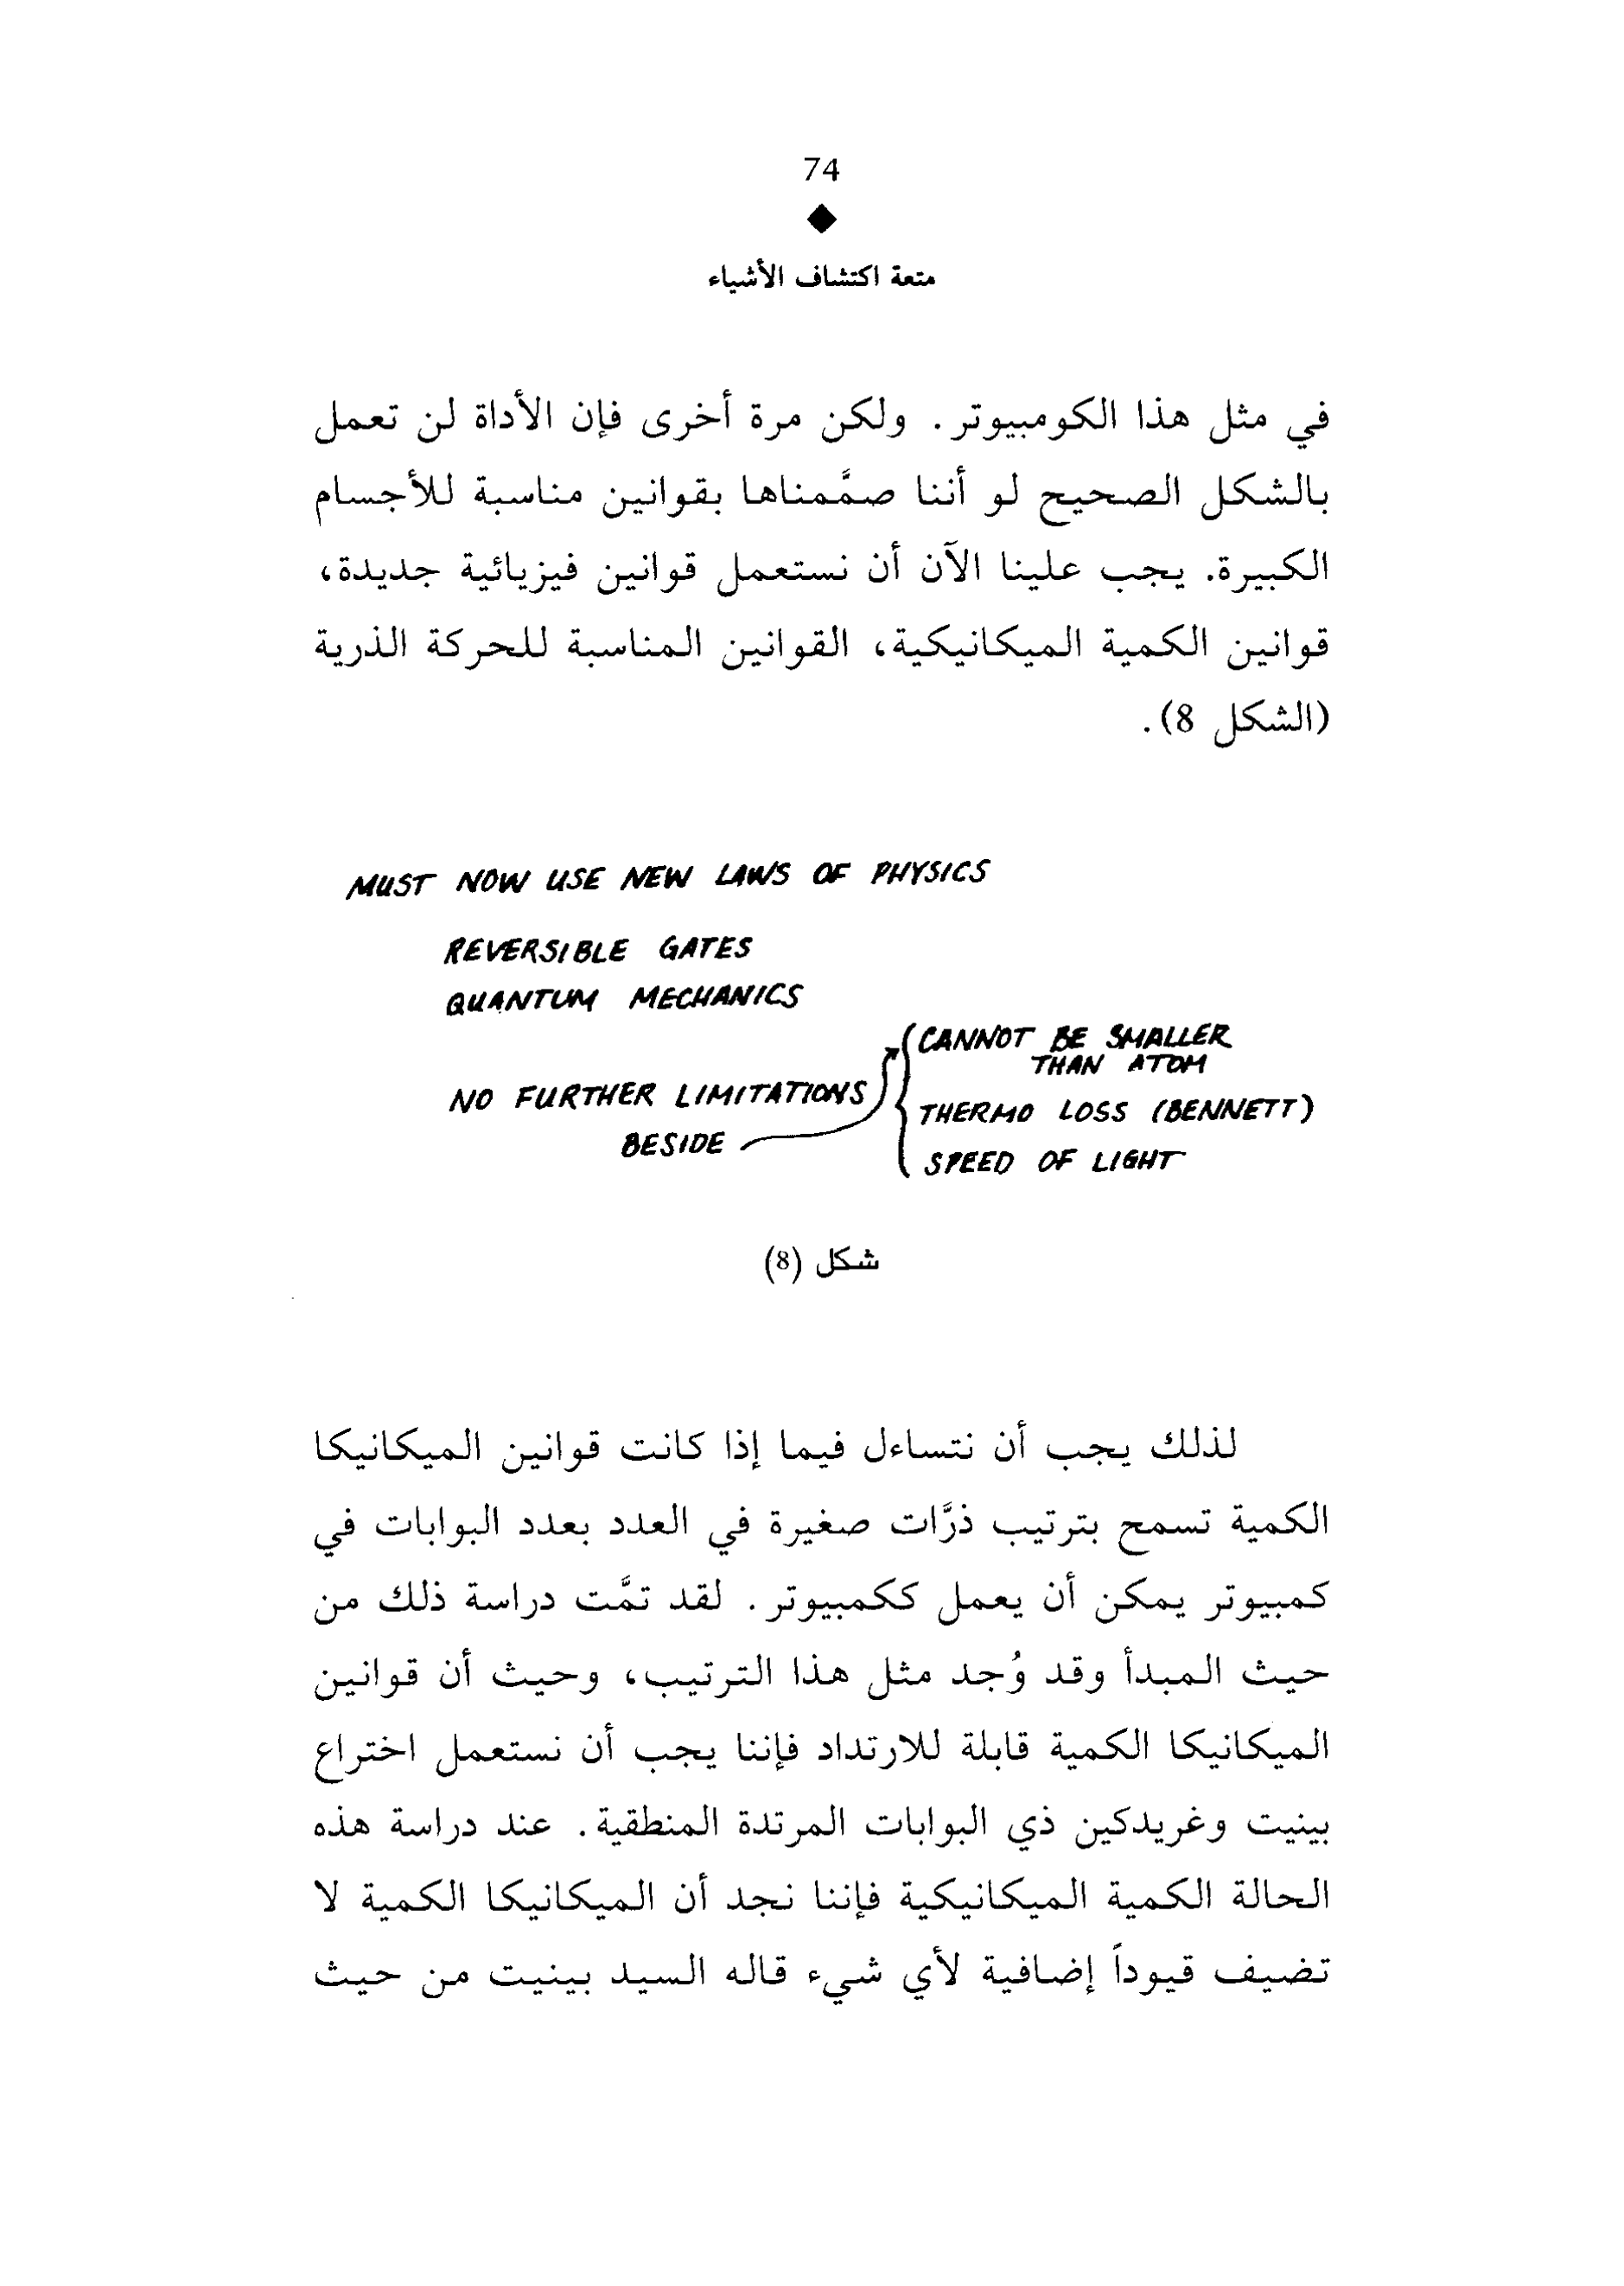 74
متعة اكتشاف الأشياء
في مثل هذا الكومبيوتر. ولكن مرة أخرى فإن الأداة لن تعمل
بالشكل الصحيح لو أننا صمَّمناها بقوانين مناسبة للأجسام
الكبيرة. يجب علينا الآن أن نستعمل قوانين فيزيائية جديدة،
قوانين الكمية الميكانيكية، القوانين المناسبة للحركة الذرية
(الشكل 8).
MUST NOW USE NEW LAWS OF PHYSICS
REVERSIBLE GATES
QUANTUM MECHANICS
NO FURTHER LIMITATIONS
BESIDE
CANNOT BE SMALLER
THAN ATOM
THERMO LOSS (BENNETT)
SPEED OF LIGHT
شكل (8)
لذلك يجب أن نتساءل فيما إذا كانت قوانين الميكانيكا
الكمية تسمح بترتيب ذرَّات صغيرة في العدد بعدد البوابات في
كمبيوتر يمكن أن يعمل ككمبيوتر. لقد تمَّت دراسة ذلك من
حيث المبدأ وقد وُجد مثل هذا الترتيب، وحيث أن قوانين
الميكانيكا الكمية قابلة للارتداد فإننا يجب أن نستعمل اختراع
بينيت وغريدكين ذي البوابات المرتدة المنطقية. عند دراسة هذه
الحالة الكمية الميكانيكية فإننا نجد أن الميكانيكا الكمية لا
تضيف قيوداً إضافية لأي شيء قاله السيد بينيت من حيث